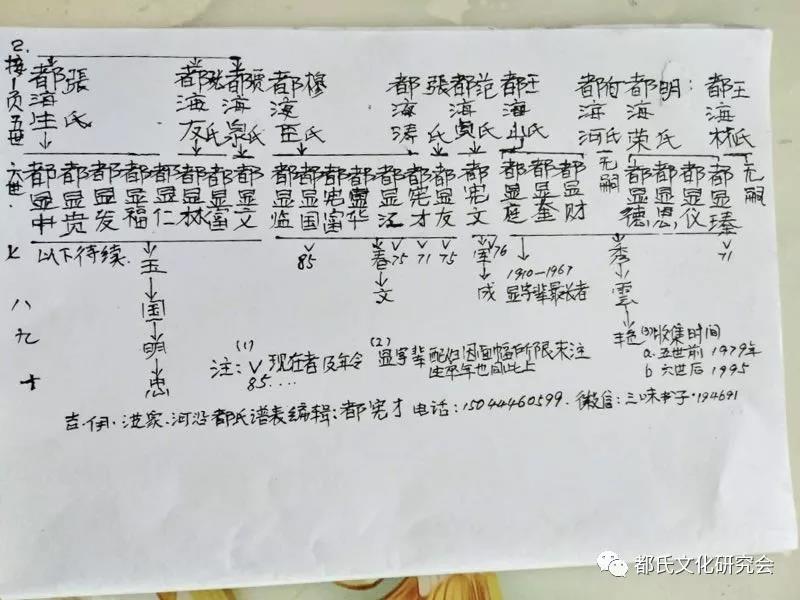 2.
接一页五世
都海生 張氏
都海友 張氏
都海泉 贾氏
都海玉 穆氏
都海涛 張氏
都海貞 范氏
都海山 王氏
都海河 何氏
都海荣 明氏
都海林 王氏
六世.
都显中 都显贵 都显发 都显福 都显仁 都显林 都显富 都显文 都显临 都显国 都宪富 都显华 都显江 都宪才 都显友 都宪文 都显庭 都显奎 都显财 无嗣 都显德 都显恩 都显仪 都显臻 无嗣
七 以下待续.
玉 国 明 忠
∨ 85
春 文
∨ 75
∨ 71
∨ 75
军 成
∨ 76
1910—1967
显字辈最长者
秀 雲 艳
∨ 71
八
九
十
注: (1) ∨ 现在者及年令
85....
(2) 显字辈配偶因面幅所限未注
生卒年也同此上
(3) 收集时间
a. 五世前 1979年
b 六世后 1995
吉.伊.洪家.河沿都氏谱表编辑:都宪才 电话:15044460599. 微信:三味书子·194691
都氏文化研究会